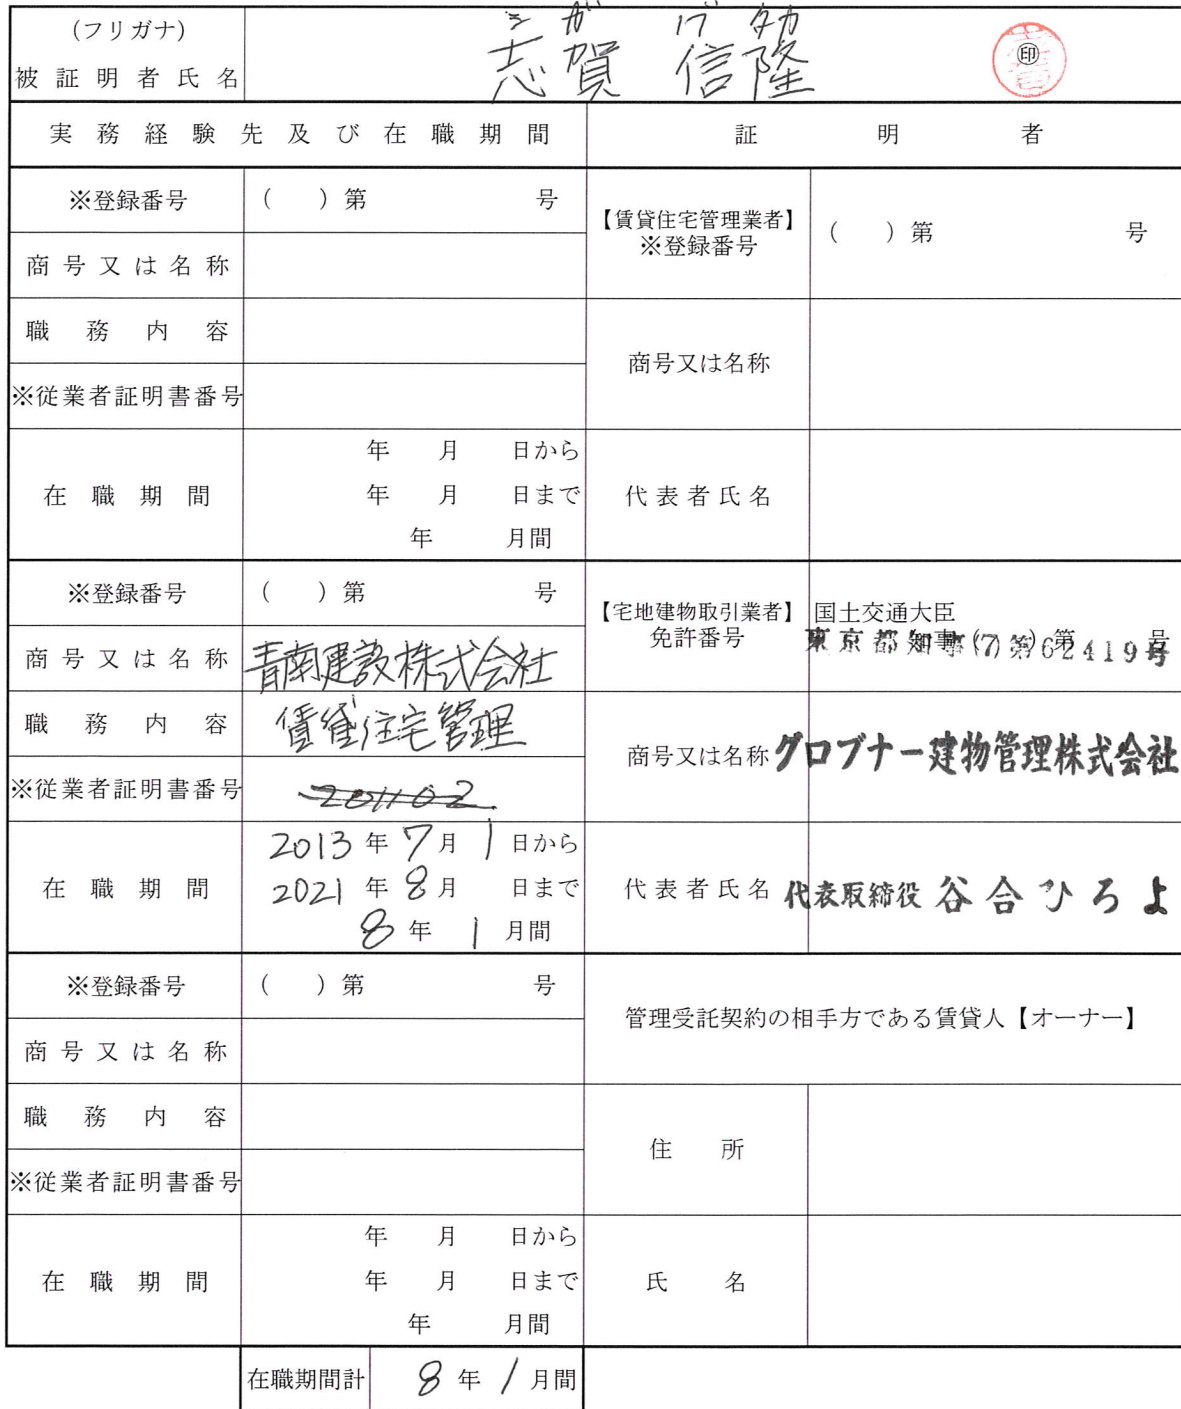 (フリガナ)
シガ ゲタカ
被証明者氏名
志賀 信隆
印
実務経験先及び在職期間
証明者
※登録番号
( ) 第 号
商号又は名称
職務内容
※従業者証明書番号
在職期間
年 月 日から
年 月 日まで
年 月間
【賃貸住宅管理業者】
※登録番号
( ) 第 号
商号又は名称
代表者氏名
※登録番号
( ) 第 号
商号又は名称
青南建設株式会社
職務内容
賃貸住宅管理
※従業者証明書番号
201102
在職期間
2013 年 7 月 1 日から
2021 年 8 月 日まで
8 年 1 月間
【宅地建物取引業者】
免許番号
国土交通大臣
東京都知事(7)第62419号
商号又は名称
グロブナー建物管理株式会社
代表者氏名
代表取締役 谷合ひろよ
※登録番号
( ) 第 号
商号又は名称
職務内容
※従業者証明書番号
在職期間
年 月 日から
年 月 日まで
年 月間
管理受託契約の相手方である賃貸人【オーナー】
住所
氏名
在職期間計
8 年 1 月間